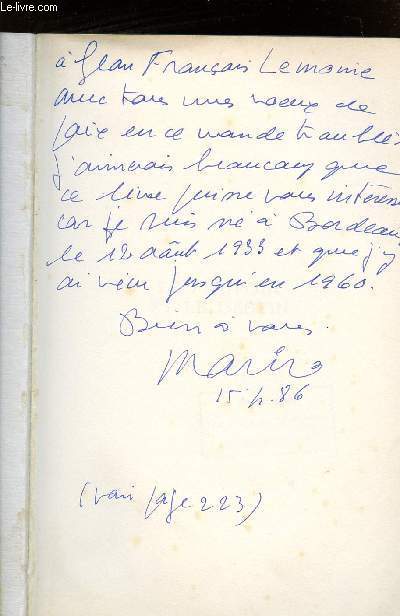 © le-livre.com
à Jean François Lemoine
avec tous mes voeux de
paix en ce monde troublé
j'aimerais beaucoup que
ce livre puisse vous intéresser
car je suis né à Bordeaux
le 12 août 1933 et que j'y
ai vécu jusqu'en 1960.
Bien à vous.
15. 86
(voir page 223)